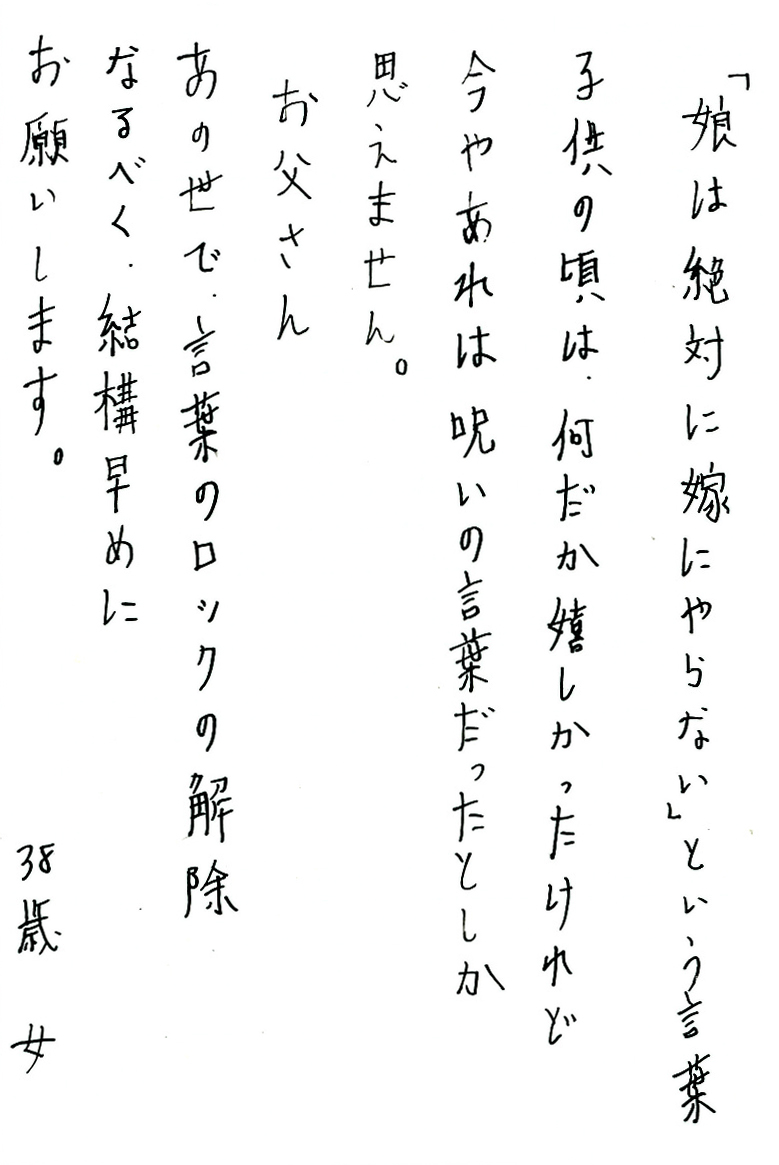 「娘は絶対に嫁にやらない」という言葉
子供の頃は、何だか嬉しかったけれど
今やあれは呪いの言葉だったとしか
思えません。
お父さん
あの世で、言葉のロックの解除
なるべく、結構早めに
お願いします。
38歳 女